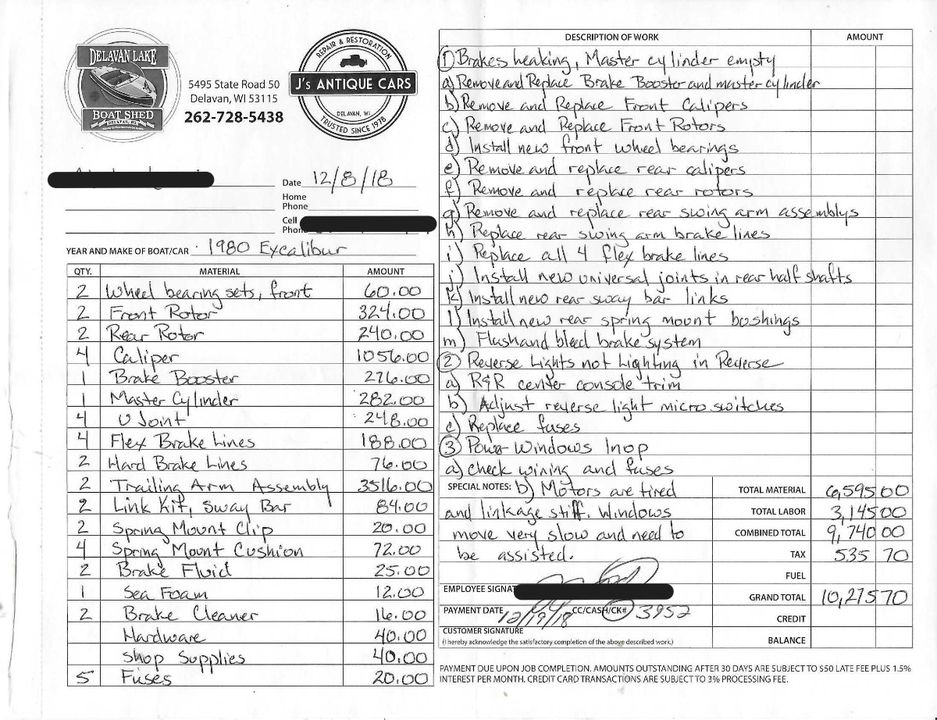 DELAVAN LAKE
BOAT SHED
DELAVAN, WI
5495 State Road 50
Delavan, WI 53115
262-728-5438
REPAIR & RESTORATION
J's ANTIQUE CARS
DELAVAN, WI
TRUSTED SINCE 1978
Date 12/8/18
Home
Phone
Cell
Phone
YEAR AND MAKE OF BOAT/CAR 1980 Excalibur
QTY. MATERIAL AMOUNT
2 Wheel bearing sets, front 60.00
2 Front Rotor 324.00
2 Rear Rotor 240.00
4 Caliper 1056.00
1 Brake Booster 276.00
1 Master Cylinder 282.00
4 U Joint 248.00
4 Flex Brake Lines 188.00
2 Hard Brake Lines 76.00
2 Trailing Arm Assembly 3516.00
2 Link Kit, Sway Bar 84.00
2 Spring Mount Clip 20.00
4 Spring Mount Cushion 72.00
2 Brake Fluid 25.00
1 Sea Foam 12.00
2 Brake Cleaner 16.00
Hardware 40.00
Shop Supplies 40.00
5 Fuses 20.00
DESCRIPTION OF WORK AMOUNT
① Brakes leaking, Master cylinder empty
a) Remove and Replace Brake Booster and master cylinder
b) Remove and Replace Front Calipers
c) Remove and Replace Front Rotors
d) Install new front wheel bearings
e) Remove and replace rear calipers
f) Remove and replace rear rotors
g) Remove and replace rear swing arm assemblys
h) Replace rear swing arm brake lines
i) Replace all 4 flex brake lines
j) Install new universal joints in rear half shafts
k) Install new rear sway bar links
l) Install new rear spring mount bushings
m) Flush and bleed brake system
② Reverse Lights not Lighting in Reverse
a) R&R center console trim
b) Adjust reverse light micro switches
c) Replace fuses
③ Power Windows Inop
a) check wiring and fuses
SPECIAL NOTES: b) Motors are tired
and linkage stiff. Windows
move very slow and need to
be assisted.
TOTAL MATERIAL 6,595 00
TOTAL LABOR 3,145 00
COMBINED TOTAL 9,740 00
TAX 535 70
FUEL
GRAND TOTAL 10,275 70
CREDIT
BALANCE
EMPLOYEE SIGNAT
PAYMENT DATE 12/19/18 CC/CASH/CK# 3952
CUSTOMER SIGNATURE
(I hereby acknowledge the satisfactory completion of the above described work.)
PAYMENT DUE UPON JOB COMPLETION. AMOUNTS OUTSTANDING AFTER 30 DAYS ARE SUBJECT TO $50 LATE FEE PLUS 1.5%
INTEREST PER MONTH. CREDIT CARD TRANSACTIONS ARE SUBJECT TO 3% PROCESSING FEE.